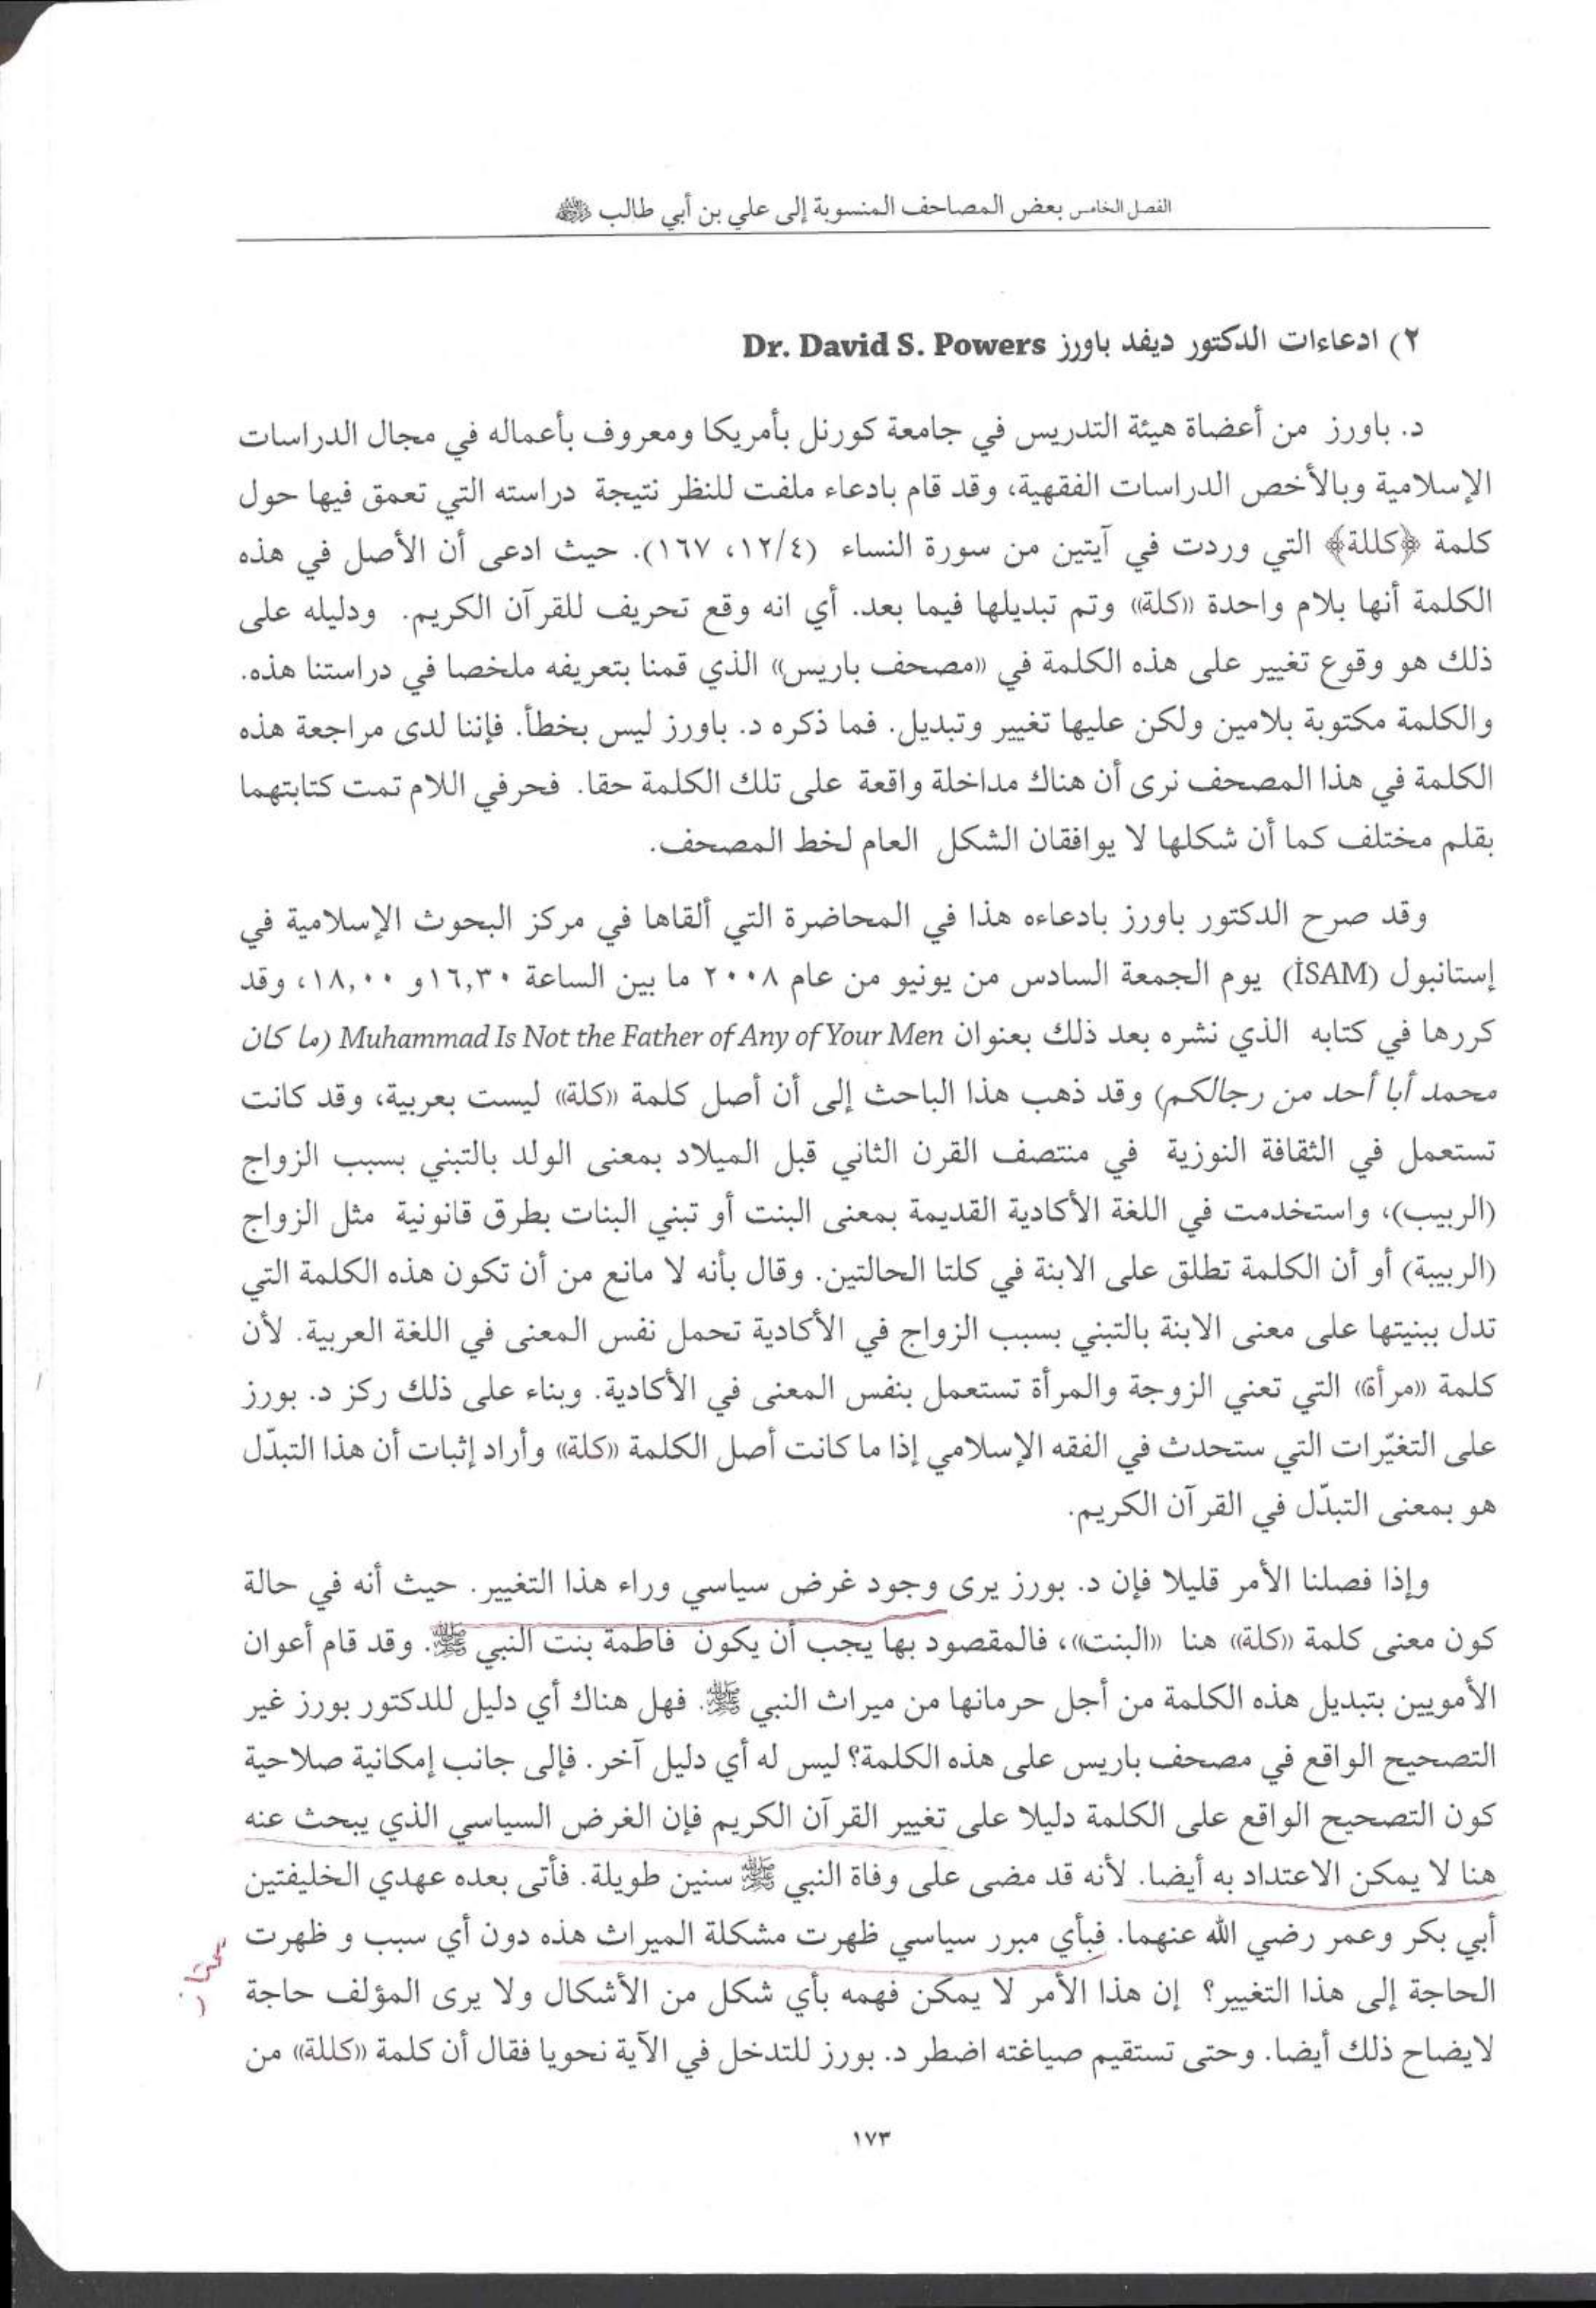 الفصل الخامس بعض المصاحف المنسوبة إلى علي بن أبي طالب ﵁
٢) ادعاءات الدكتور ديفد باورز Dr. David S. Powers
د. باورز من أعضاة هيئة التدريس في جامعة كورنل بأمريكا ومعروف بأعماله في مجال الدراسات
الإسلامية وبالأخص الدراسات الفقهية، وقد قام بادعاء ملفت للنظر نتيجة دراسته التي تعمق فيها حول
كلمة ﴿كللة﴾ التي وردت في آيتين من سورة النساء (١٢/٤، ١٦٧). حيث ادعى أن الأصل في هذه
الكلمة أنها بلام واحدة «كلة» وتم تبديلها فيما بعد. أي انه وقع تحريف للقرآن الكريم. ودليله على
ذلك هو وقوع تغيير على هذه الكلمة في «مصحف باريس» الذي قمنا بتعريفه ملخصا في دراستنا هذه.
والكلمة مكتوبة بلامين ولكن عليها تغيير وتبديل. فما ذكره د. باورز ليس بخطأ. فإننا لدى مراجعة هذه
الكلمة في هذا المصحف نرى أن هناك مداخلة واقعة على تلك الكلمة حقا. فحرفي اللام تمت كتابتهما
بقلم مختلف كما أن شكلها لا يوافقان الشكل العام لخط المصحف.
وقد صرح الدكتور باورز بادعاءه هذا في المحاضرة التي ألقاها في مركز البحوث الإسلامية في
إستانبول (İSAM) يوم الجمعة السادس من يونيو من عام ٢٠٠٨ ما بين الساعة ١٦,٣٠و ١٨,٠٠، وقد
كررها في كتابه الذي نشره بعد ذلك بعنوان Muhammad Is Not the Father of Any of Your Men (ما كان
محمد أبا أحد من رجالكم) وقد ذهب هذا الباحث إلى أن أصل كلمة «كلة» ليست بعربية، وقد كانت
تستعمل في الثقافة النوزية في منتصف القرن الثاني قبل الميلاد بمعنى الولد بالتبني بسبب الزواج
(الربيب)، واستخدمت في اللغة الأكادية القديمة بمعنى البنت أو تبني البنات بطرق قانونية مثل الزواج
(الربيبة) أو أن الكلمة تطلق على الابنة في كلتا الحالتين. وقال بأنه لا مانع من أن تكون هذه الكلمة التي
تدل ببنيتها على معنى الابنة بالتبني بسبب الزواج في الأكادية تحمل نفس المعنى في اللغة العربية. لأن
كلمة «مرأة» التي تعني الزوجة والمرأة تستعمل بنفس المعنى في الأكادية. وبناء على ذلك ركز د. بورز
على التغيّرات التي ستحدث في الفقه الإسلامي إذا ما كانت أصل الكلمة «كلة» وأراد إثبات أن هذا التبدّل
هو بمعنى التبدّل في القرآن الكريم.
وإذا فصلنا الأمر قليلا فإن د. بورز يرى وجود غرض سياسي وراء هذا التغيير. حيث أنه في حالة
كون معنى كلمة «كلة» هنا «البنت»، فالمقصود بها يجب أن يكون فاطمة بنت النبي ﷺ. وقد قام أعوان
الأمويين بتبديل هذه الكلمة من أجل حرمانها من ميراث النبي ﷺ. فهل هناك أي دليل للدكتور بورز غير
التصحيح الواقع في مصحف باريس على هذه الكلمة؟ ليس له أي دليل آخر. فإلى جانب إمكانية صلاحية
كون التصحيح الواقع على الكلمة دليلا على تغيير القرآن الكريم فإن الغرض السياسي الذي يبحث عنه
هنا لا يمكن الاعتداد به أيضا. لأنه قد مضى على وفاة النبي ﷺ سنين طويلة. فأتى بعده عهدي الخليفتين
أبي بكر وعمر رضي الله عنهما. فبأي مبرر سياسي ظهرت مشكلة الميراث هذه دون أي سبب و ظهرت
الحاجة إلى هذا التغيير؟ إن هذا الأمر لا يمكن فهمه بأي شكل من الأشكال ولا يرى المؤلف حاجة
لايضاح ذلك أيضا. وحتى تستقيم صياغته اضطر د. بورز للتدخل في الآية نحويا فقال أن كلمة «كللة» من
١٧٣